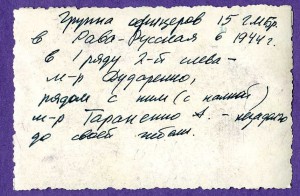 Группа офицеров 15 гмбр.
в Рава-Русская в 1944г.
в 1 ряду 2-й слева -
м-р Бударенко,
рядом с ним (с палкой)
м-р Тараненко А. - незадолго
до своей гибели.